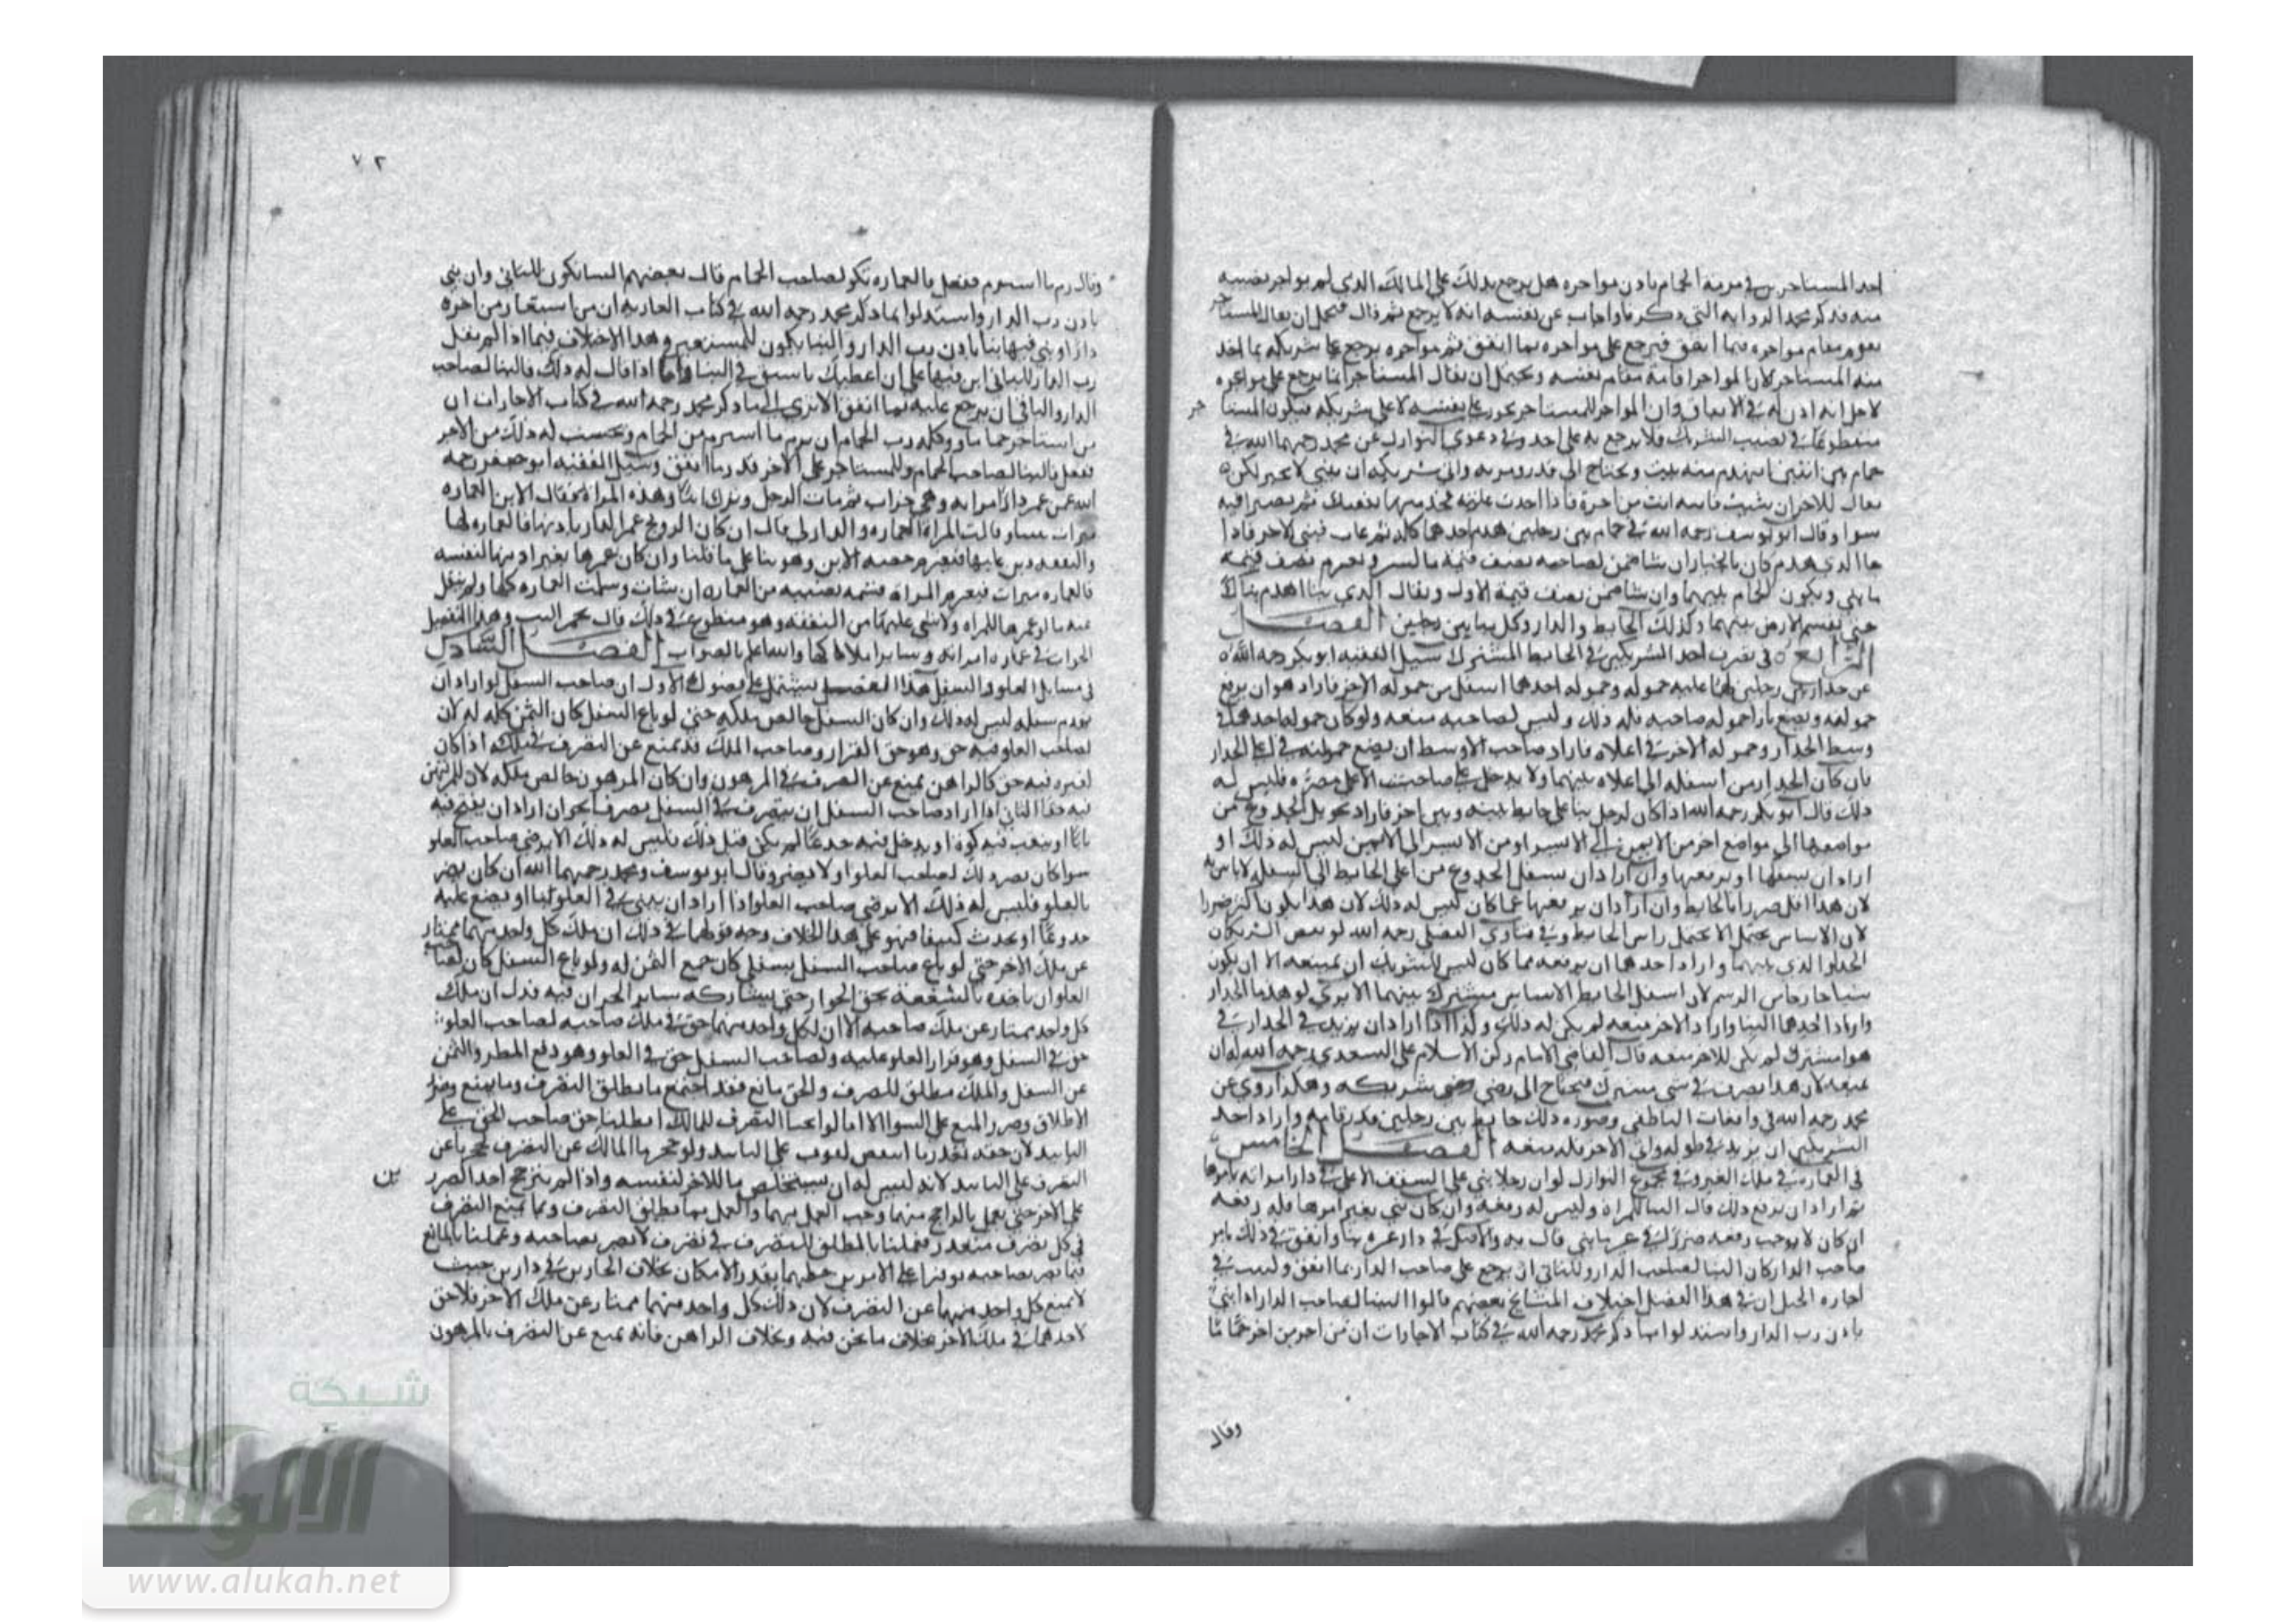 احد المستاجرين في مرمة الحمام باذن مواجره هل يرجع بذلك على المالك الذي لم يواجر نصيبه
منه فذكر محمد الرواية التي ذكرنا واجاب عن نفسه انه لا يرجع ثم قال فيحتمل ان يقال المستاجر
يقوم مقام مواجره فيما انفق فيرجع على مواجره بما انفق ثم مواجره يرجع على شريكه بما اخذ
منه المستاجر لان المواجر اقامه مقام نفسه ويحتمل ان يقال المستاجر انما يرجع على مواجره
لاجل انه اذن له في الانفاق واذن المواجر للمستاجر يجوز على نفسه لا على شريكه فيكون المستاجر
متطوعا في نصيب الشريك فلا يرجع به على احد وفي دعوى النوازل عن محمد رحمهما الله في
حمام بين اثنين انهدم منه بيت ويحتاج الى قدر ومرمة وابى شريكه ان يبني لا يجبر لكن
يقال للاخر ان شيت فابنه انت من اجرة فاذا اخذت غلته فخذ منها نفقتك ثم تصيرا فيه
سوا وقال ابو يوسف رحمه الله في حمام بين رجلين هدم احدهما ثم غاب فبنى الاخر فاذا
جا الذي هدم كان بالخيار ان شا ضمن لصاحبه نصف قيمة ما كسر وتغرم نصف قيمة
ما بنى ويكون الحمام بينهما وان شا ضمن نصف قيمة الاول ويقال للذي بنا اهدم بناك
حتى تقسم الارض بينهما وكذلك الحايط والدار وكل بنا بين رجلين الفصل
الرابع في تصرف احد الشريكين في الحايط المشترك سيل الفقيه ابو بكر رحمه الله
عن جدار بين رجلين لهما عليه حمولة وحمولة احدهما اسفل من حمولة الاخر فاراد هو ان يرفع
حمولته ويضع بازا حمولة صاحبه فله ذلك وليس لصاحبه منعه ولو كان حمولة احدهما في
وسط الجدار وحمولة الاخر في اعلاه فاراد صاحب الاوسط ان يضع حمولته في اعلى الجدار
فان كان الجدار من اسفله الى اعلاه بينهما ولا يدخل على صاحب الاعلى مضرة فليس له
ذلك قال ابو بكر رحمه الله اذا كان لرجل بنا على حايط بينه وبين اخر فاراد تحويل الجذوع من
مواضعها الى مواضع اخر من الايمن الى الايسر او من الايسر الى الايمن ليس له ذلك او
اراد ان يسفلها او يرفعها وان اراد ان يسفل الجذوع من اعلى الحايط الى اسفله لا باس به
لان هذا اقل ضررا بالحايط وان اراد ان يرفعها عما كان ليس له ذلك لان هذا يكون اكثر ضررا
لان الاساس يحتمل ما لا يحتمل راس الحايط وفي فتاوى الفضلي رحمه الله لو نقض الشريكان
الجدار الذي بينهما واراد احدهما ان يرفعه مما كان ليس للشريك ان يمنعه الا ان يكون
شيا خارجا من الرسم لان اسفل الحايط الاساس مشترك بينهما الا يرى لو هدما الجدار
واراد احدهما البنا واراد الاخر منعه لم يكن له ذلك ولذا اذا اراد ان يزيد في الجدار في
هوا مشترك لم يكن للاخر منعه قال القاضي الامام ركن الاسلام علي السعدي رحمه الله له ان
يمنعه لان هذا تصرف في شي مشترك فيحتاج الى رضى شريكه وهكذا روي عن
محمد رحمه الله في واقعات الناطفي وصورة ذلك حايط بين رجلين قدر قامة واراد احد
الشريكين ان يزيد في طوله وابى الاخر فله منعه الفصل الخامس
في العمارة في ملك الغير وفي مجموع النوازل لو ان رجلا بنى على السقف الاعلى في دار امراته بامرها
ثم اراد ان يرفع ذلك قال البنا للمراة وليس له رفعه وان كان بنى بغير امرها فله رفعه
ان كان لا يوجب رفعه ضررا في غير ما بنى قال به والاصل في دار غيره بنا وانفق في ذلك بامر
صاحب الدار كان البنا لصاحب الدار وللباني ان يرجع على صاحب الدار بما انفق وليست في
اجارة الحيل ان في هذا الفصل اختلاف المشايخ بعضهم قالوا البنا لصاحب الدار اذا بنى
باذن رب الدار واستدلوا بما ذكر محمد رحمه الله في كتاب الاجارات ان من اجر من اخر حماما
وقال
٧٢
وقال رم ما استرم ففعل فالعمارة تكون لصاحب الحمام قال بعضهم البنا يكون للباني وان بنى
باذن رب الدار واستدلوا بما ذكر محمد رحمه الله في كتاب العارية ان من استعار من اخره
دارا وبنى فيها بنا باذن رب الدار والبنا يكون للمستعير وهذا الاختلاف فيما اذا لم يقل
رب الدار للباني ابن فيها على ان اعطيك ما تنفق في البنا واما اذا قال له ذلك فالبنا لصاحب
الدار والباني ان يرجع عليه بما انفق الا يرى الى ما ذكر محمد رحمه الله في كتاب الاجارات ان
من استاجر حماما ووكله رب الحمام ان يرم ما استرم من الحمام ويحتسب له ذلك من الاجر
ففعل فالبنا لصاحب الحمام وللمستاجر على الاخر قدر ما انفق وسيل الفقيه ابو جعفر رحمه
الله عن عمر دار امراته وهي خراب ثم مات الرجل وترك ابنا وهذه المراة فقال الابن العمارة
ميراث بيننا وقالت المراة العمارة والدار لي قال ان كان الزوج عمر الدار باذنها فالعمارة لها
والنفقة دين عليها فتغرم حصة الابن وهو بنا على ما قلنا وان كان عمرها بغير اذنها لنفسه
فالعمارة ميراث فتغرم المراة قيمة نصيبه من العمارة ان شات وسلمت العمارة كلها ولم يقل
عنه ما لو عمرها للمراة ولا شي عليها من النفقة وهو متطوع في ذلك قال نجم الدين وهذا التفصيل
الجواب في عمارة امراته وساير املاكها والله اعلم بالصواب الفصل السادس
في مسايل العلو والسفل هذا الفصل يشتمل على فصول الاول ان صاحب السفل لو اراد ان
يهدم سفله ليس له ذلك وان كان السفل خالص ملكه حتى لو باع السفل كان الثمن كله له لان
لصاحب العلو فيه حق وهو حق القرار وصاحب الملك قد يمنع عن التصرف في ملكه اذا كان
لغيره فيه حق كالراهن يمنع عن التصرف في المرهون وان كان المرهون خالص ملكه لان للمرتهن
فيه حقا الثاني اذا اراد صاحب السفل ان يتصرف في السفل تصرفا نحو ان اراد ان يفتح فيه
بابا او ينقب فيه كوة او يدخل فيه جذعا لم يكن قبل ذلك فليس له ذلك الا برضى صاحب العلو
سوا كان يضر ذلك لصاحب العلو او لا يضر وقال ابو يوسف ومحمد رحمهما الله ان كان يضر
بالعلو فليس له ذلك الا برضى صاحب العلو اذا اراد ان يبني في العلو بنا او يضع عليه
جذوعا او يحدث كنيفا فهو على هذا الخلاف وجه قولهما في ذلك ان ملك كل واحد منهما ممتاز
عن ملك الاخر حتى لو باع صاحب السفل سفله كان جميع الثمن له ولو باع السفل كان لصاحب
العلو ان ياخذه بالشفعة بحق الجوار حتى يشاركه ساير الجيران فيه فدل ان ملك
كل واحد ممتاز عن ملك صاحبه الا ان لكل واحد منهما حق في ملك صاحبه لصاحب العلو
حق في السفل وهو قرار العلو عليه ولصاحب السفل حق في العلو وهو دفع المطر والثمن
عن السفل والملك مطلق للتصرف والحق مانع فقد اجتمع ما يطلق التصرف وما يمنع وضرر
الاطلاق وضرر المنع على السوا
التصرف على التابيد لانه ليس له ان يستخلص مال الاخر لنفسه واذا لم يترجح احد الضررين
على الاخر حتى يعمل بالراجح منهما وجب العمل بهما والعمل بما يطلق التصرف وبما يمنع التصرف
في كل تصرف متعذر فعملنا بالمطلق للتصرف في تصرف لا يضر بصاحبه وعملنا بالمانع
فيما يضر بصاحبه توفيرا على الامرين حظهما بقدر الامكان بخلاف الجارين في دارين حيث
لا يمنع كل واحد منهما عن التصرف لان ذلك كل واحد منهما ممتاز عن ملك الاخر فلا حق
لاحدهما في ملك الاخر بخلاف ما نحن فيه وبخلاف الراهن فانه يمنع عن التصرف بالمرهون
شبكة
الألوكة
www.alukah.net